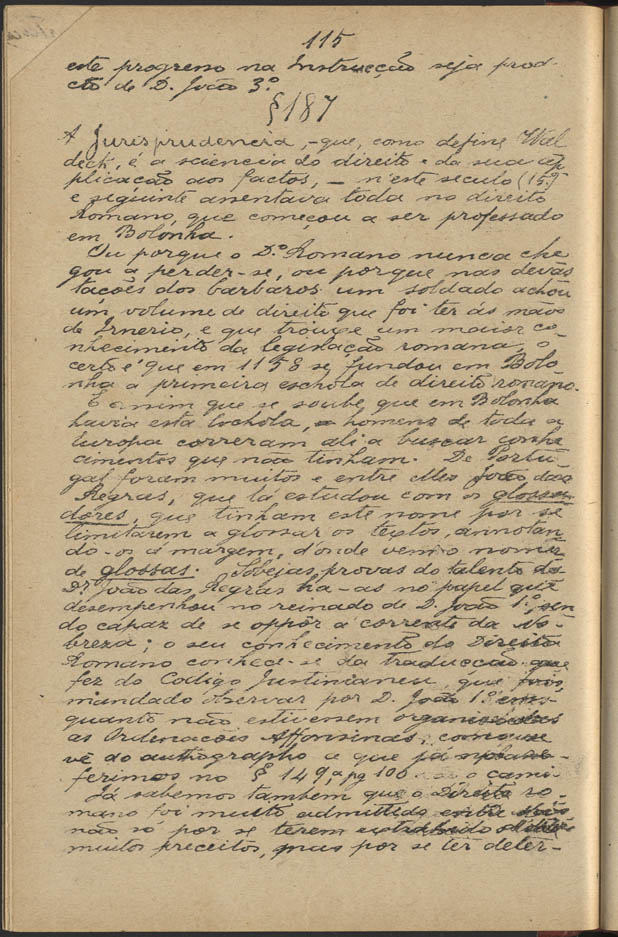 115
este progresso na Instrucção seja prod-
cto de D. João 3.º
§ 187
A Jurisprudencia, - que, como define Wal
deck, é a sciencia do direito e da sua ap
plicação aos factos, - n'este seculo (15.º)
e seguinte assentava toda no direito
Romano, que começou a ser professado
em Bolonha.
Ou porque o D.º Romano nunca che
gou a perder-se, ou porque nas devas
tações dos barbaros um soldado achou
um volume de direito que foi ter ás mãos
de Irnerio, e que trouxe um maior co-
nhecimento da legislação romana, o
certo é que em 1158 se fundou em Bolo
nha a primeira eschola de direito romano.
E assim que se soube que em Bolonha
havia esta eschola, homens de toda a
Europa correram ali a buscar conhe
cimentos que não tinham. De Portu
gal foram muitos e entre elles João das
Regras, que lá estudou com os glossa
dores, que tinham este nome por se
limitarem a glossar os textos, annotan
do-os á margem, d'onde vem o nome
de glossas. Sobejas provas do talento do
Dr. João das Regras ha-as no papel que
desempenhou no reinado de D. João 1.º, sen
do capaz de se oppôr á corrente da no-
breza; o seu conhecimento do Direito
Romano conhece-se da traducção que
fez do Codigo Justinianeu, que foi
mandado observar por D. João 1.º em-
quanto não estivessem organisadas
as Ordenações Affonsinas, como se
vê do authographo a que já nos re-
ferimos no § 149, a pg 100
Já sabemos tambem que o Direito ro-
mano foi muito admittido entre nós
não só por se terem extrahido d'elle
muitos preceitos, mas por se ter deter-